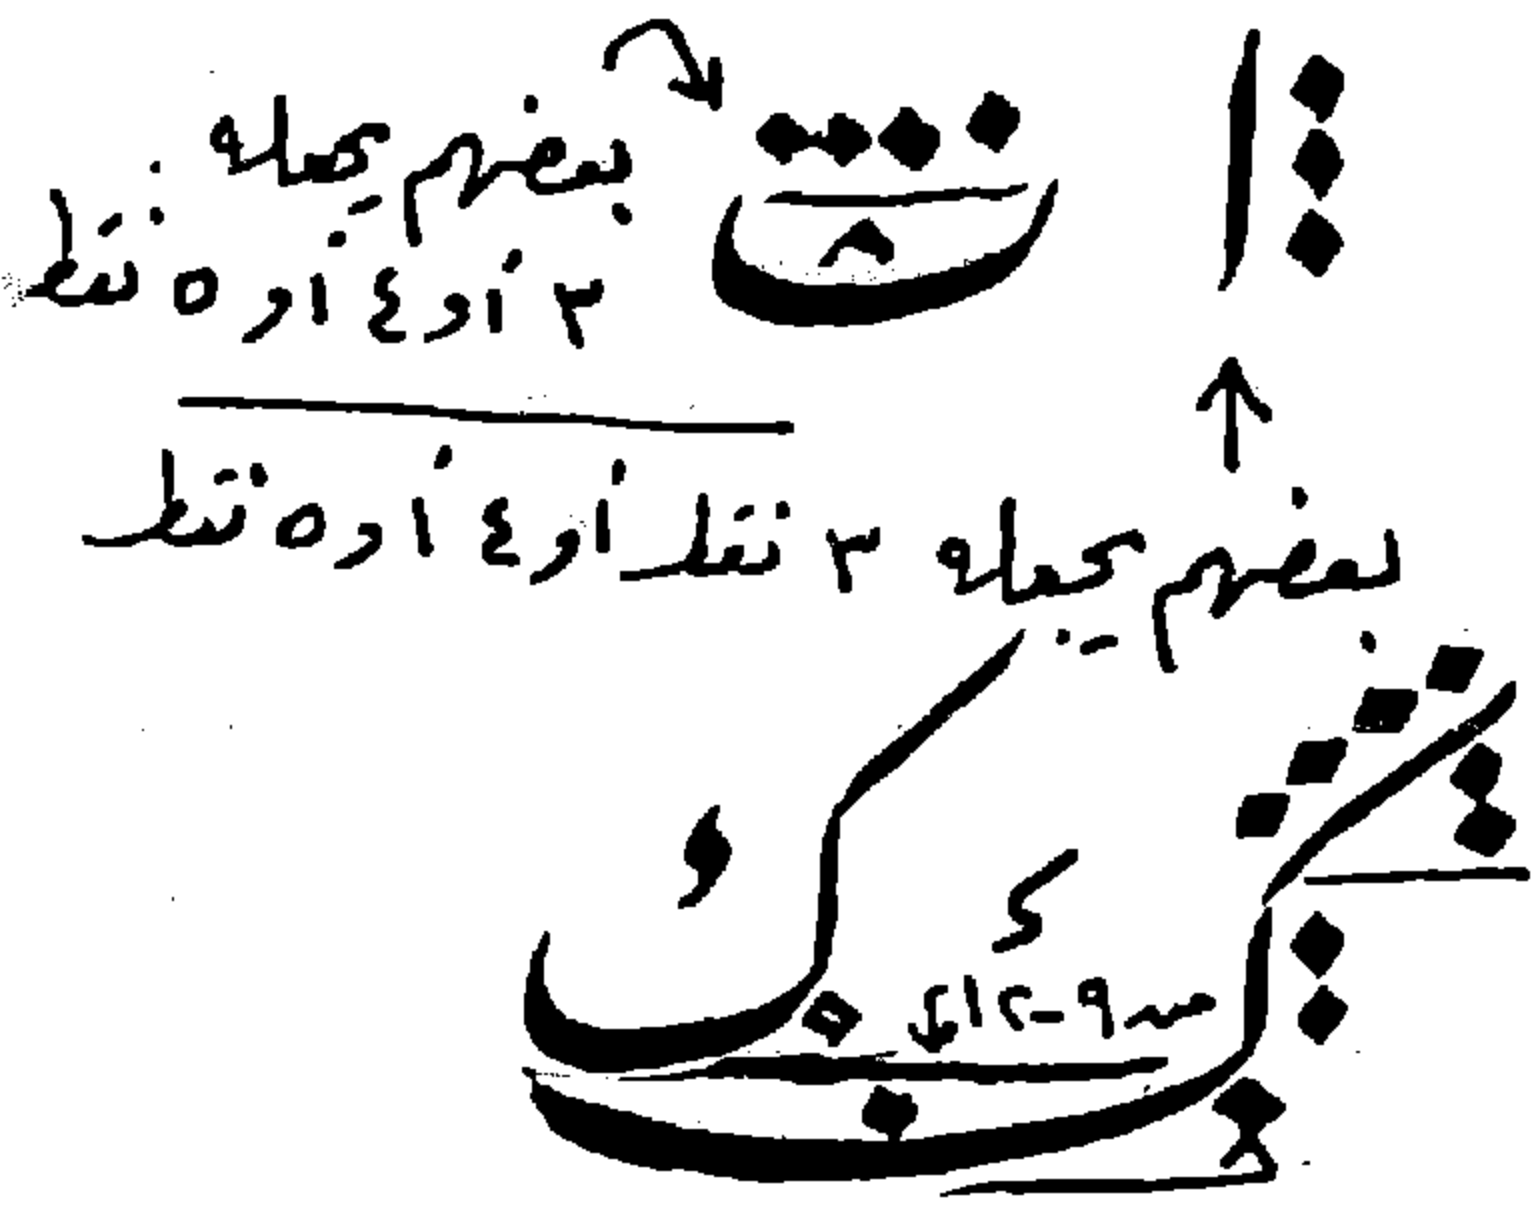 بعضهم يجعله
٣ أو ٤ أو ٥ نقط
بعضهم يجعله ٣ نقط أو ٤ أو ٥ نقط
ا
ك
من ٩-١٢